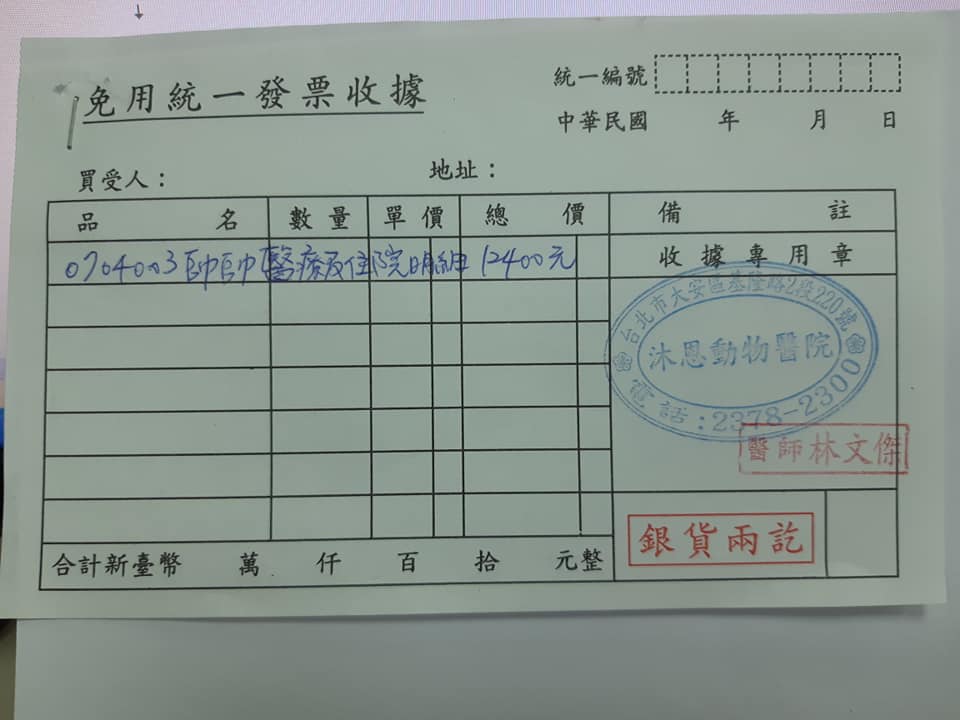 免用統一發票收據
統一編號
中華民國 年 月 日
買受人： 地址：
品名 數量 單價 總價 備註
0704003帥帥醫療及住院明細 12400元 收據專用章
台北市大安區基隆路2段220號
沐恩動物醫院
電話:2378-2300
醫師林文傑
銀貨兩訖
合計新臺幣 萬 仟 百 拾 元整